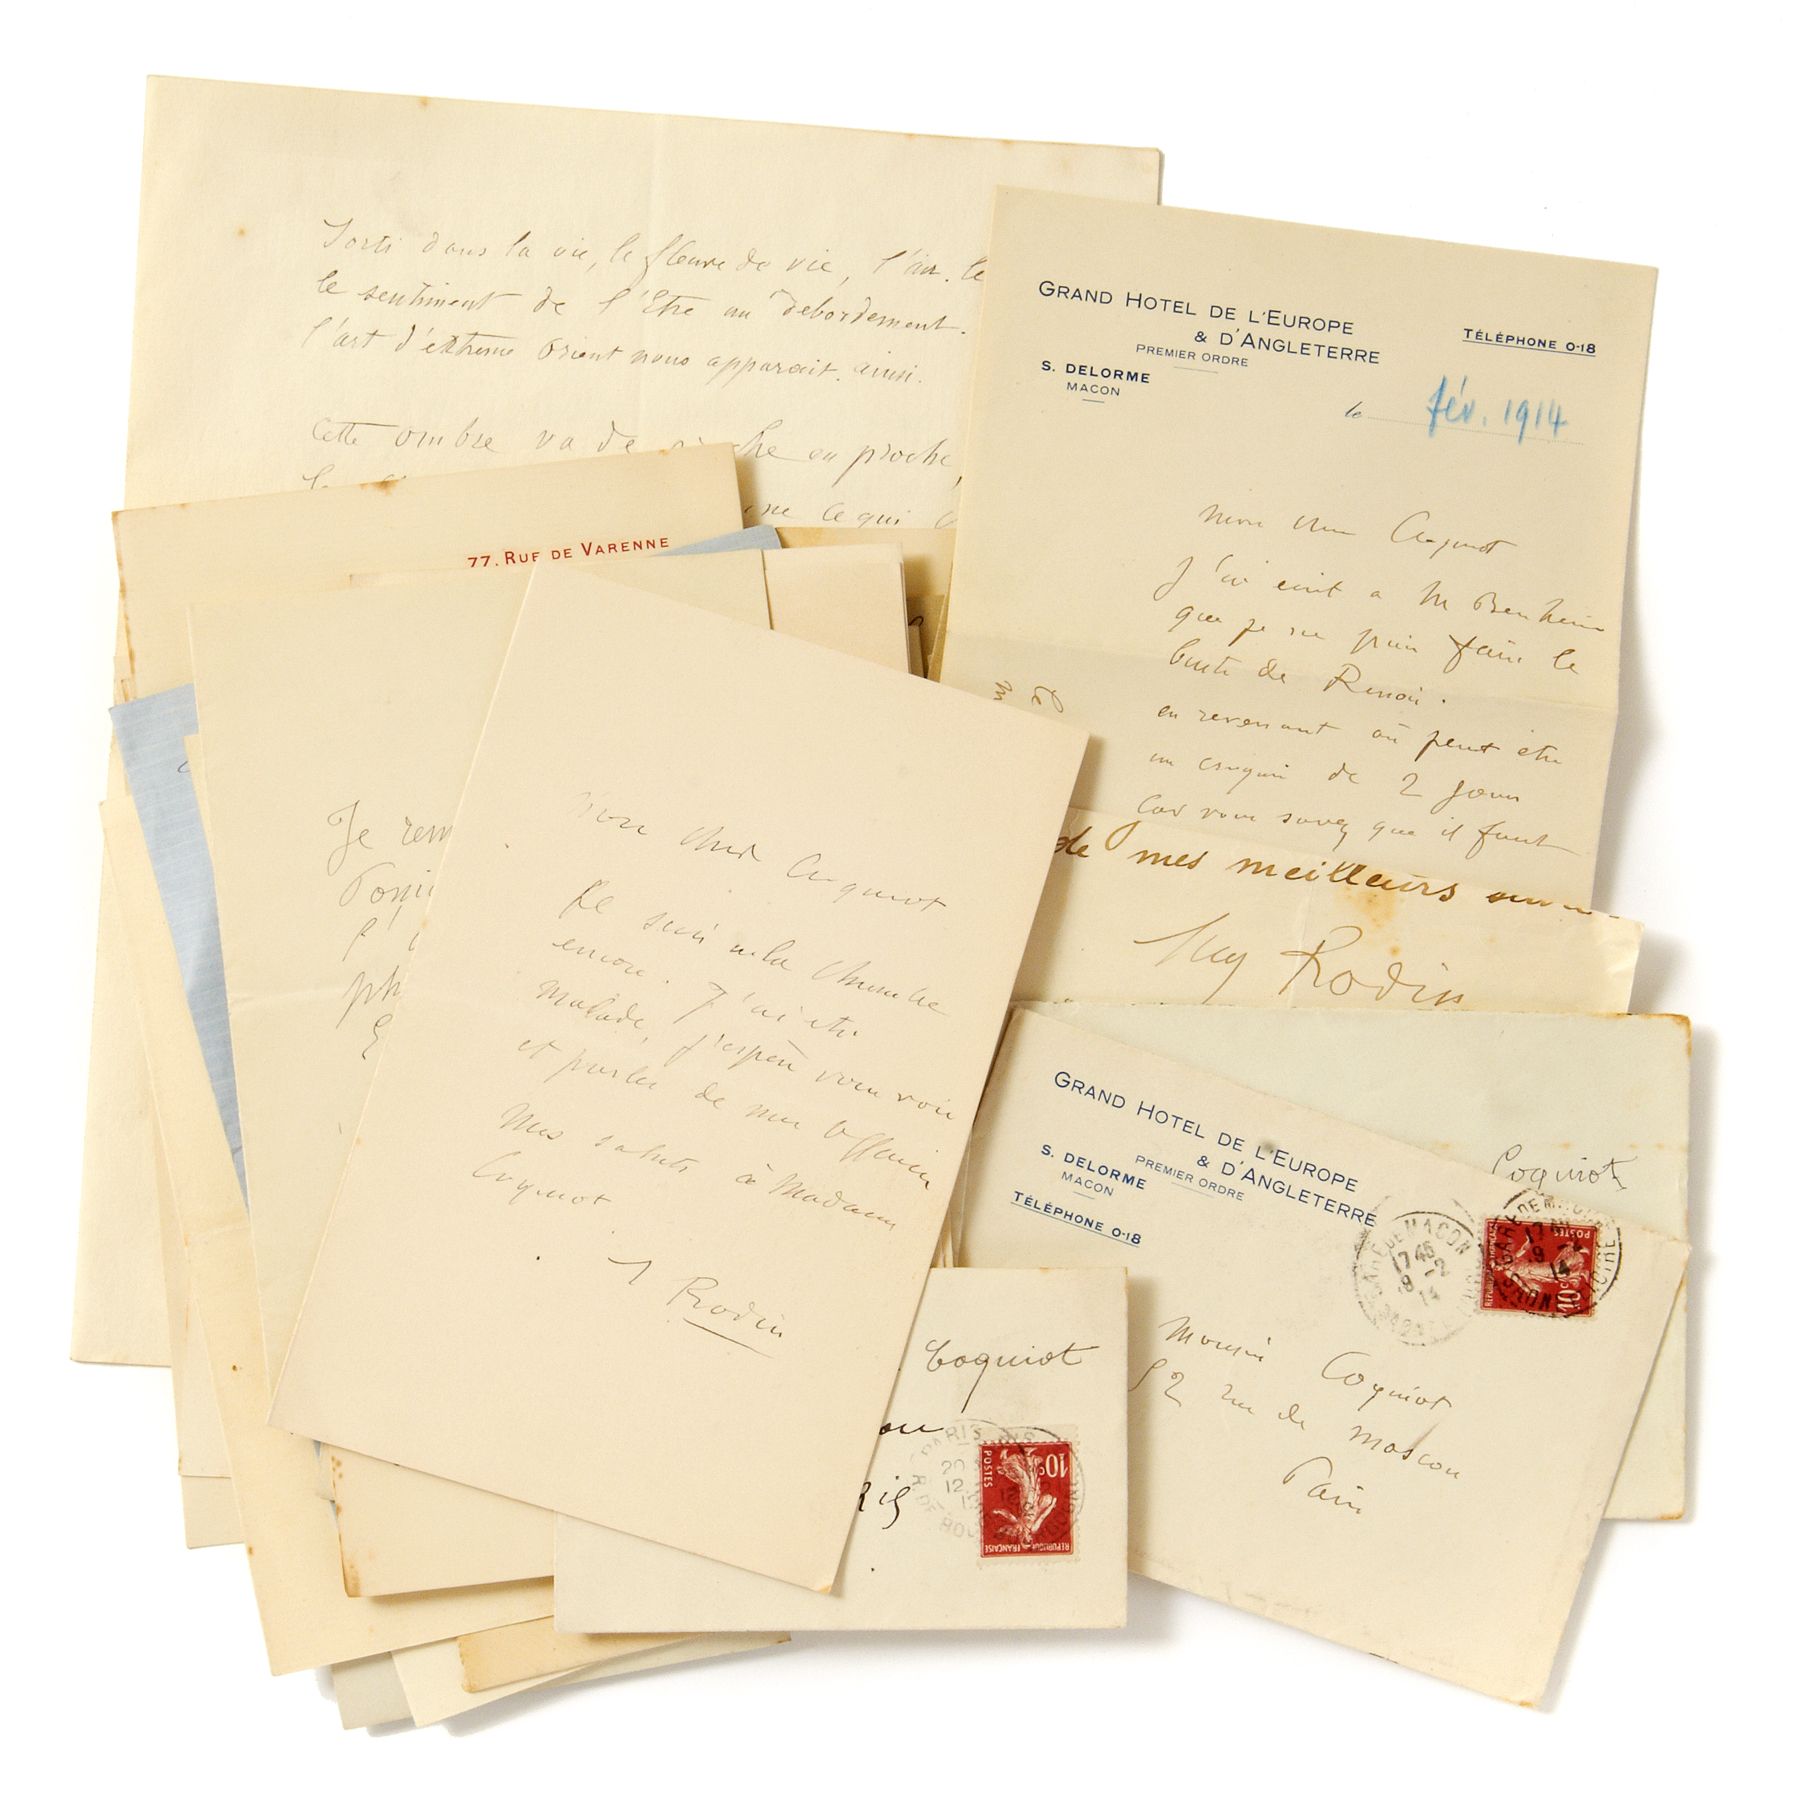 Sorti dans la vie, le fleuve de vie, l'air. le
le sentiment de l'Etre au debordement.
l'art d'extreme Orient nous apparait. ainsi.
Cette ombre va de proche en proche,
ce qui
77. RUE DE VARENNE
GRAND HOTEL DE L'EUROPE
& D'ANGLETERRE
PREMIER ORDRE
S. DELORME
MACON
TÉLÉPHONE 0-18
le fév. 1914
Mon cher Coquiot
J'ai ecrit a M Bernheim
que je ne puis faire le
buste de Renoir.
en revenant ou peut etre
un croquis de 2 jours
Car vous savez que il faut
de mes meilleurs
Aug Rodin
Je rem
l'
ph
Mon cher Coquiot
Je suis a la chambre
encore. J'ai ete
Malade, j'espere vous voir
et parler de
Mes saluts à Madame
Coquiot
A Rodin
Coquiot
GRAND HOTEL DE L'EUROPE
& D'ANGLETERRE
PREMIER ORDRE
S. DELORME
MACON
TÉLÉPHONE 0-18
GARE DE MACON
17 45
9 -2
14
POSTES
10c
Monsieur Coquiot
52 rue de Moscou
Paris
Coquiot
ou
ris
PARIS
20
12
10c
POSTES
REPUBLIQUE FRANÇAISE